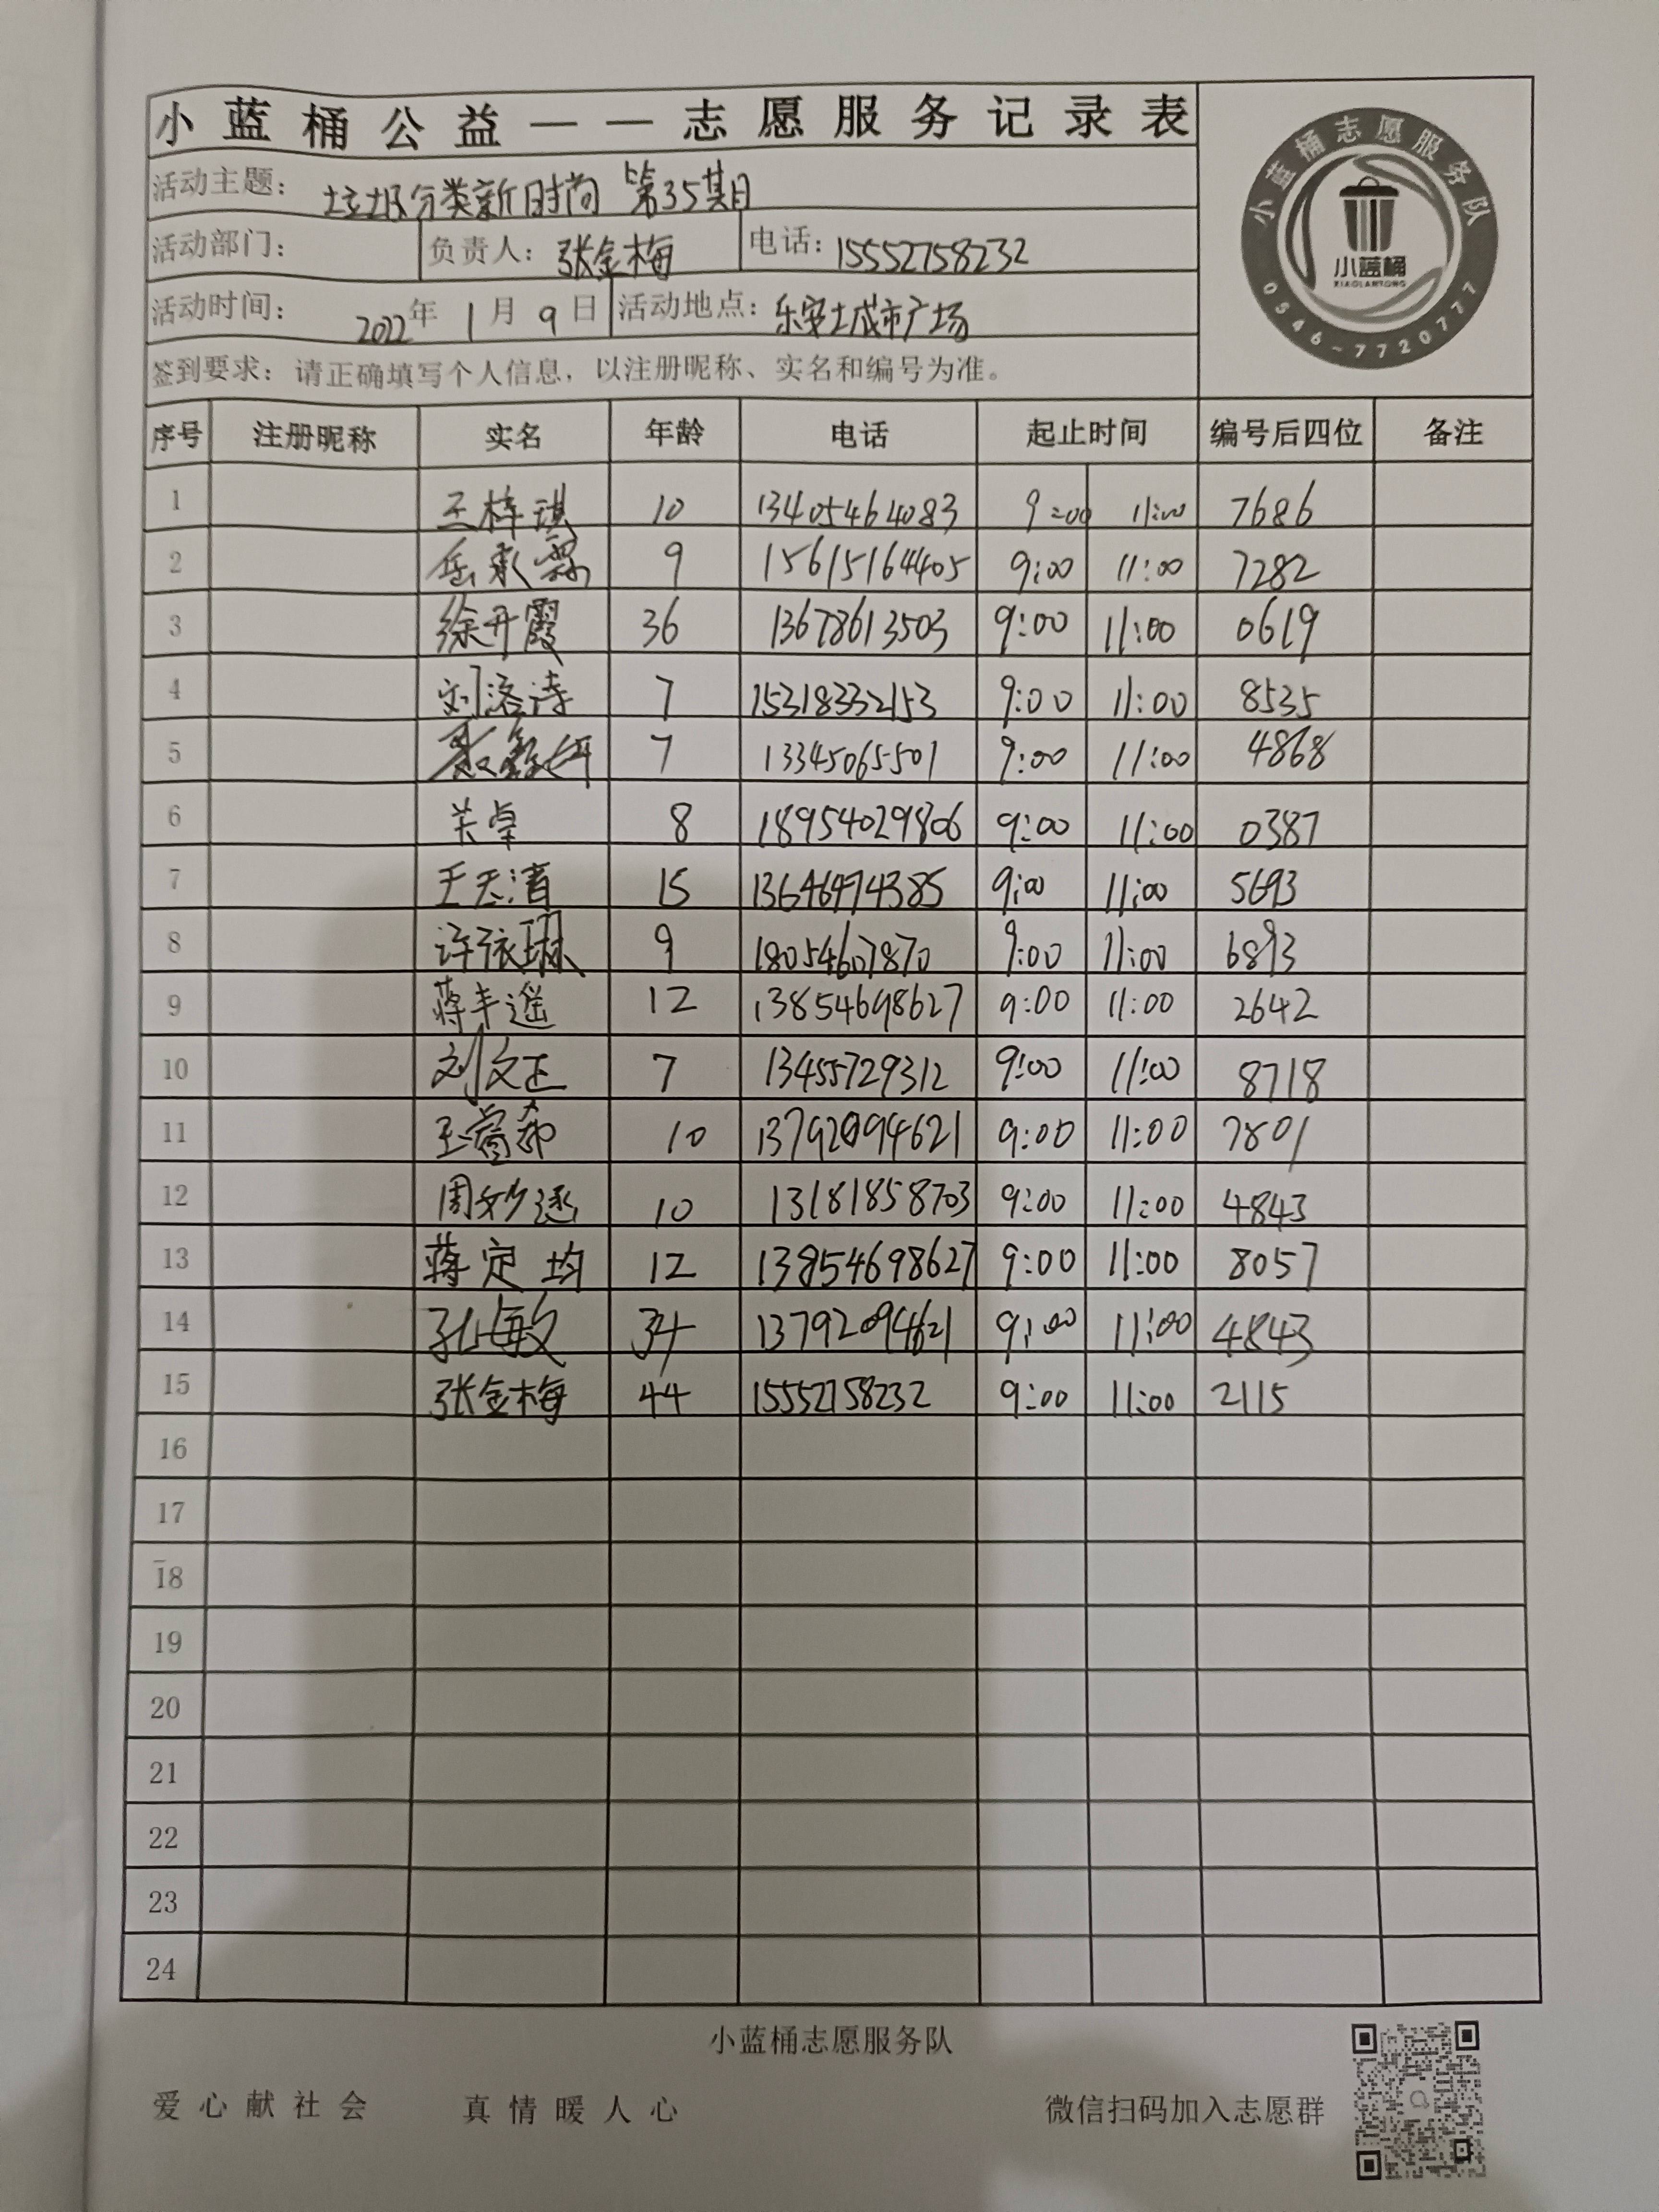 小蓝桶公益——志愿服务记录表
活动主题： 垃圾分类新时尚 第35期
活动部门： 负责人：张金梅 电话：15552758232
活动时间： 2022年 1月 9日 活动地点：乐安城市广场
签到要求：请正确填写个人信息，以注册昵称、实名和编号为准。
小蓝桶志愿服务队
小蓝桶
XIAOLANTONG
0546-7720777
序号 注册昵称 实名 年龄 电话 起止时间 编号后四位 备注
1 王梓琪 10 13405464083 9:00 11:00 7686
2 岳承霖 9 15615164405 9:00 11:00 7282
3 徐开霞 36 13678613503 9:00 11:00 0619
4 刘洛诗 7 15318332153 9:00 11:00 8535
5 7 13345065501 9:00 11:00 4868
6 关卓 8 18954029806 9:00 11:00 0387
7 王天清 15 13646474385 9:00 11:00 5693
8 许依琳 9 18054607870 9:00 11:00 6893
9 蒋丰遥 12 13854698627 9:00 11:00 2642
10 刘文正 7 13455729312 9:00 11:00 8718
11 10 13792094621 9:00 11:00 7801
12 周妙逐 10 13181858703 9:00 11:00 4843
13 蒋定均 12 13854698627 9:00 11:00 8057
14 孔敏 34 13792094621 9:00 11:00 4843
15 张金梅 44 15552758232 9:00 11:00 2115
16
17
18
19
20
21
22
23
24
小蓝桶志愿服务队
爱心献社会 真情暖人心 微信扫码加入志愿群